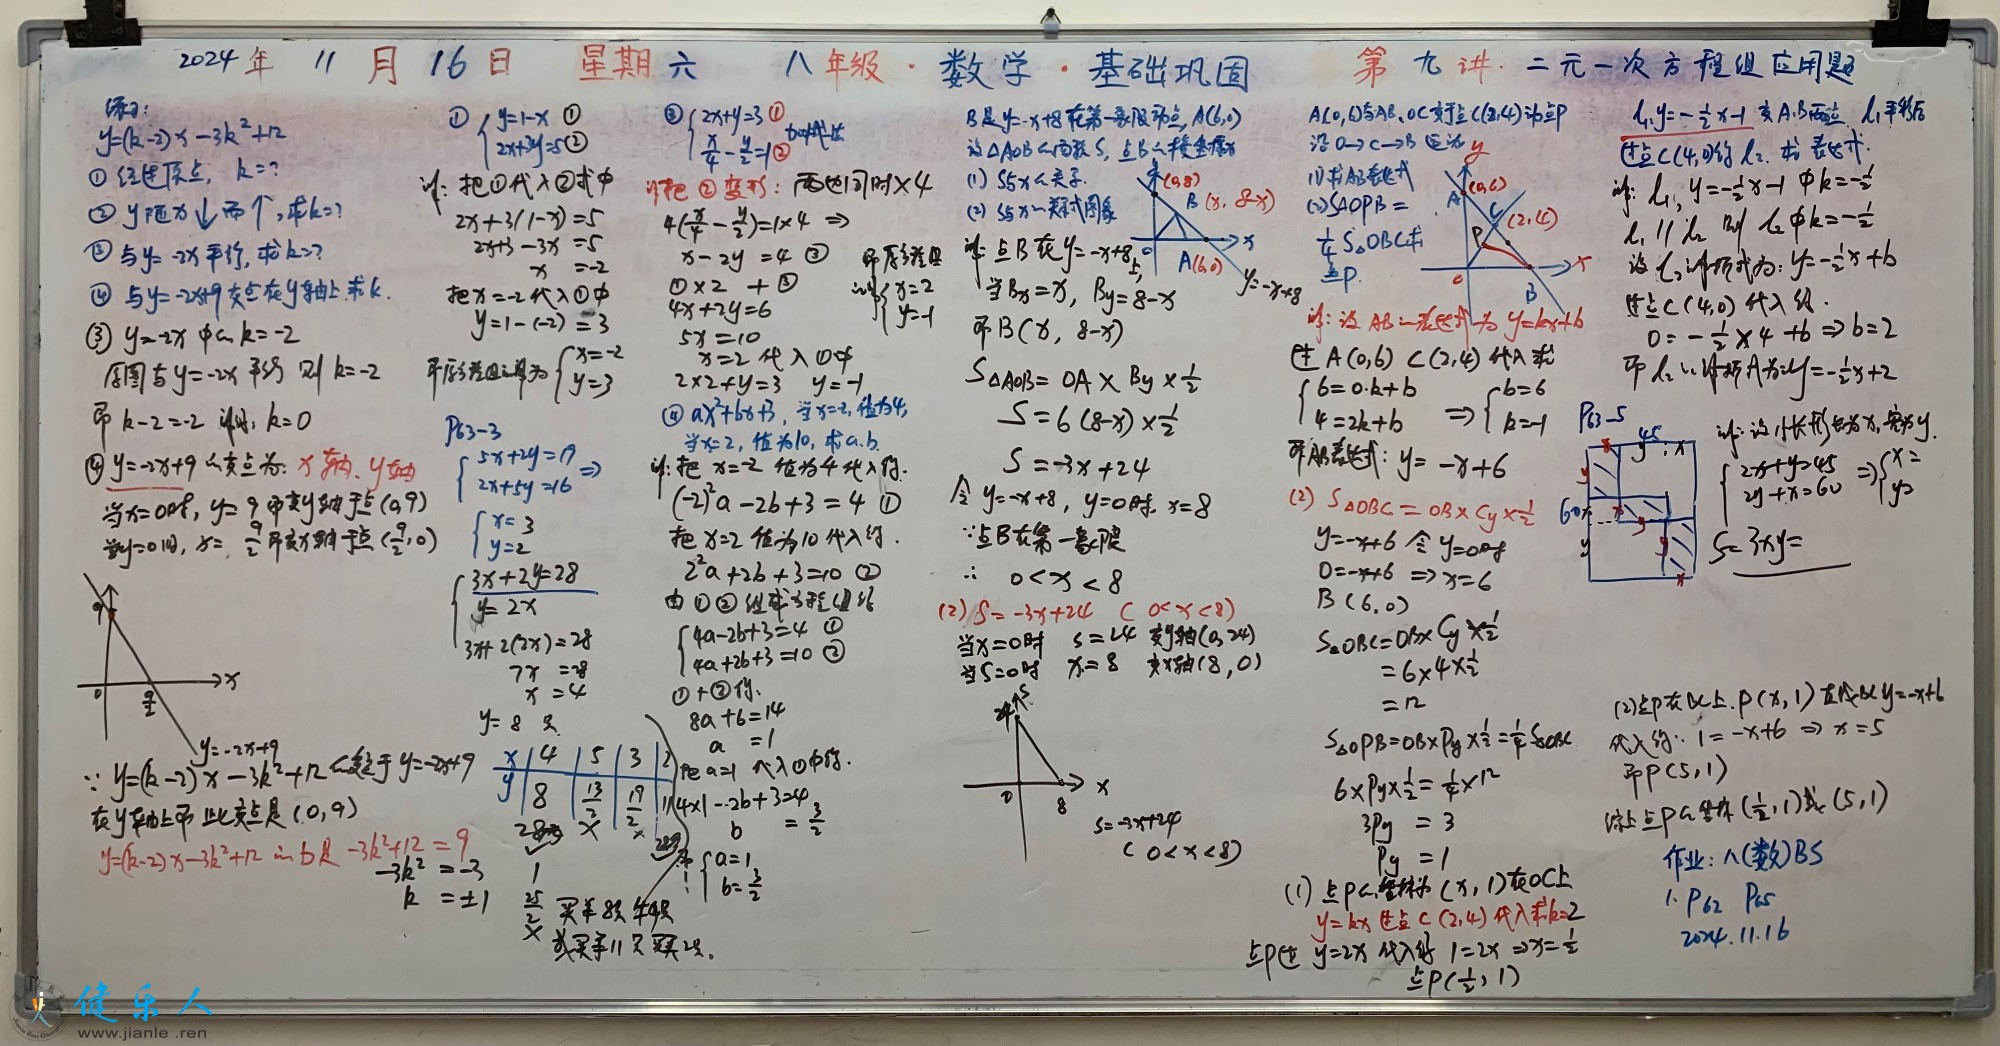 2024年 11月16日 星期六 八年级·数学·基础巩固 第九讲·二元一次方程组应用题
练习:
y=(k-2)x-3k²+12
① 经过原点, k=?
② y随x↓而↑,求k=?
③ 与y=-2x平行,求k=?
④ 与y=-2x+9交点在y轴上.求k.
③ y=-2x中 k=-2
原图与y=-2x平行 则k=-2
即k-2=-2 解得, k=0
④ y=-2x+9 交点为: x轴、y轴
当x=0时, y=9 即交y轴于点(0,9)
当y=0时, x=9/2 即交x轴于点(9/2,0)
9
0
9/2
x
y=-2x+9
∵ y=(k-2)x-3k²+12 交于y=-2x+9
在y轴上即此交点是(0,9)
y=(k-2)x-3k²+12 b是 -3k²+12=9
-3k²=-3
k=±1
① { y=1-x ①
2x+3y=5 ②
解: 把①代入②式中
2x+3(1-x)=5
2x+3-3x=5
x=-2
把x=-2代入①中
y=1-(-2)=3
即原方程组解为 { x=-2
y=3
P63-3
{ 5x+2y=19 ⇒
2x+5y=16
{ x=3
y=2
{ 3x+2y=28
y=2x
3x+2(2x)=28
7x=28
x=4
y=8 只
x 4 5 3 2
y 8 13/2 19/2 11
28 × ×
1
25/2
×
③ { 2x+y=3 ①
x/4-y/2=1 ②
加减法
解: 把②变形: 两边同时×4
4(x/4-y/2)=1×4 ⇒
x-2y=4 ③
①×2+③
4x+2y=6
5x=10
x=2 代入①中
2×2+y=3 y=-1
即原方程组
解 { x=2
y=-1
④ ax²+bx+3, 当x=-2,值为4,
当x=2, 值为10, 求a.b.
解: 把x=-2 值为4代入得.
(-2)²a-2b+3=4 ①
把x=2 值为10代入得.
2²a+2b+3=10 ②
由①②组成方程组得
{ 4a-2b+3=4 ①
4a+2b+3=10 ②
①+②得.
8a+6=14
a=1
把a=1代入①中得.
4×1-2b+3=4
b=3/2
{ a=1
b=3/2
B是y=-x+8在第一象限动点, A(6,0)
设△AOB 面积S, 点B 横坐标x
(1) S与x 关系.
(2) S与x 关系式图象
(0,8)
B (x, 8-x)
0
A(6,0)
x
y=-x+8
解: 点B在y=-x+8上,
当Bx=x, By=8-x
即B(x, 8-x)
S△AOB=OA×By×1/2
S=6(8-x)×1/2
S=-3x+24
令y=-x+8, y=0时, x=8
∵点B在第一象限
∴ 0<x<8
(2) S=-3x+24 (0<x<8)
当x=0时 S=24 交y轴(0,24)
当S=0时 x=8 交x轴(8,0)
S
24
0
8
x
S=-3x+24
(0<x<8)
A(0,6)与AB,OC交于点C(2,4)动点P
沿O→C→B运动
(1)求AB表达式
(2)S△OPB=
1/4 S△OBC求
点P.
y
(0,6)
A
C
(2,4)
P
0
B
x
解: 设AB 表达式为y=kx+b
过A(0,6) C(2,4)代入求
{ 6=0·k+b
4=2k+b
⇒ { b=6
k=-1
即AB表达式: y=-x+6
(2) S△OBC=OB×Cy×1/2
y=-x+6 令y=0时
0=-x+6 ⇒x=6
B(6,0)
S△OBC=OB×Cy×1/2
=6×4×1/2
=12
S△OPB=OB×Py×1/2=1/4 S△OBC
6×Py×1/2=1/4×12
3Py=3
Py=1
(1) 点P 坐标为(x,1)在OC上
y=kx过点C(2,4)代入求k=2
点P过y=2x代入得 1=2x⇒x=1/2
点P(1/2,1)
l₁y=-1/2x-1 交A.B两点, l₁平移后
过点C(4,0)的l₂. 求 表达式.
解: l₁,y=-1/2x-1 中k=-1/2
l₁∥l₂ 则l₂中k=-1/2
设l₂解析式为: y=-1/2x+b
过点C(4,0)代入得.
0=-1/2×4+b⇒b=2
即l₂ 解析式为:y=-1/2x+2
P63-5
45
60
x
y
解: 设小长形长为x,宽为y.
{ 2x+y=45
2y+x=60
⇒ { x=
y=
S=3xy=
(2)点P在BC上. P(x,1)直线BC y=-x+6
代入得: 1=-x+6 ⇒ x=5
即P(5,1)
综上点P 坐标(1/2,1)或(5,1)
作业: 八(数)BS
1. P62 P65
2024.11.16
买羊8只 牛4只
或买羊11只 买2只.
健乐人
www.jianle.ren